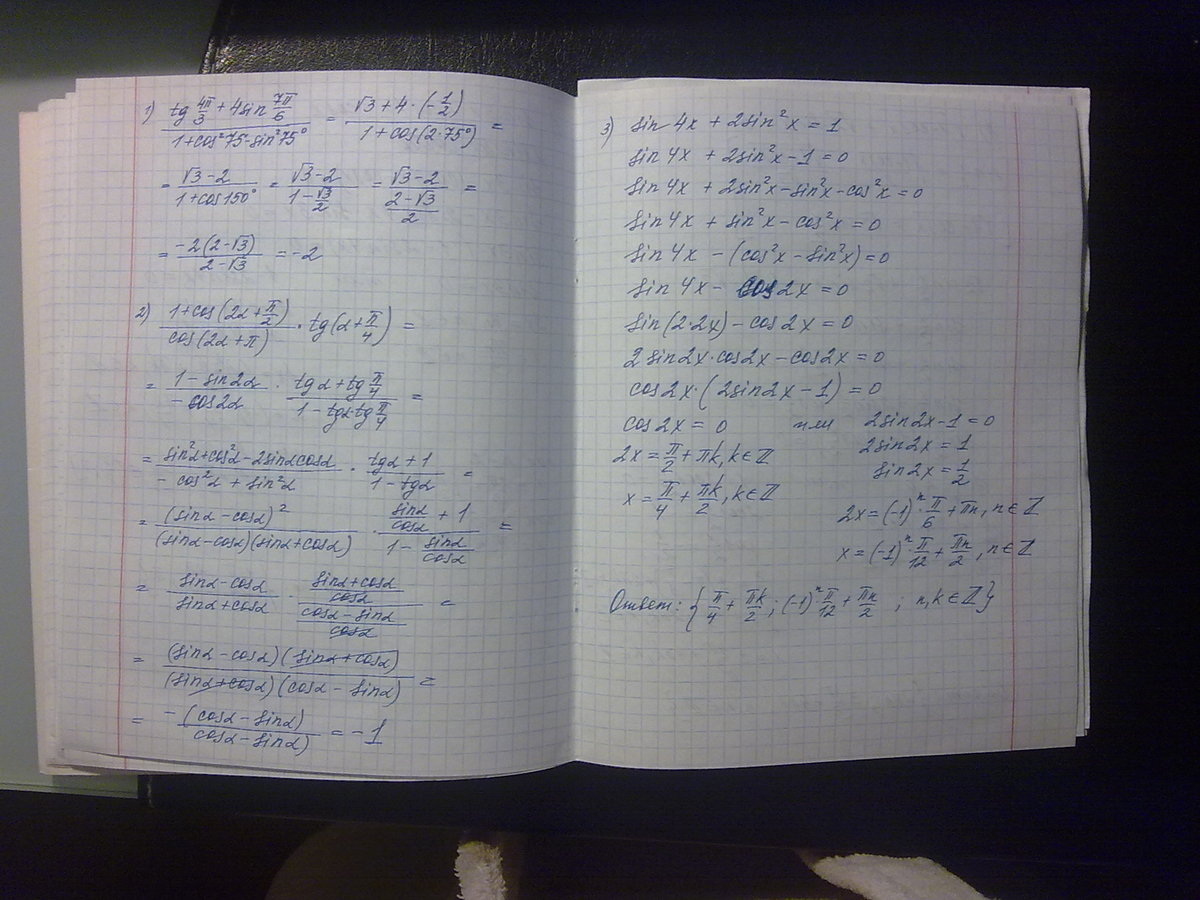 1) (tg 4π/3 + 4sin 7π/6)/(1+cos²75-sin²75°) = (√3+4·(-1/2))/(1+cos(2·75°)) =
= (√3-2)/(1+cos150°) = (√3-2)/(1-√3/2) = (√3-2)/((2-√3)/2) =
= (-2(2-√3))/(2-√3) = -2
2) (1+cos(2α+π/2))/(cos(2α+π)) · tg(α+π/4) =
= (1-sin2α)/(-cos2α) · (tgα+tg π/4)/(1-tgα·tg π/4) =
= (sin²α+cos²α-2sinαcosα)/(-cos²α+sin²α) · (tgα+1)/(1-tgα) =
= (sinα-cosα)²/((sinα-cosα)(sinα+cosα)) · (sinα/cosα + 1)/(1 - sinα/cosα) =
= (sinα-cosα)/(sinα+cosα) · ((sinα+cosα)/cosα)/((cosα-sinα)/cosα) =
= ((sinα-cosα)(sinα+cosα))/((sinα+cosα)(cosα-sinα)) =
= (-(cosα-sinα))/(cosα-sinα) = -1
3) sin4x + 2sin²x = 1
sin4x + 2sin²x-1 = 0
sin4x + 2sin²x-sin²x-cos²x = 0
sin4x + sin²x-cos²x = 0
sin4x - (cos²x-sin²x) = 0
sin4x - cos2x = 0
sin(2·2x) - cos2x = 0
2sin2x·cos2x-cos2x = 0
cos2x·(2sin2x-1) = 0
cos2x = 0 или 2sin2x-1 = 0
2x = π/2 + πk, k∈ℤ 2sin2x = 1
x = π/4 + πk/2, k∈ℤ sin2x = 1/2
2x = (-1)ⁿ·π/6 + πn, n∈ℤ
x = (-1)ⁿ·π/12 + πn/2, n∈ℤ
Ответ: {π/4 + πk/2; (-1)ⁿ π/12 + πn/2, n,k∈ℤ}